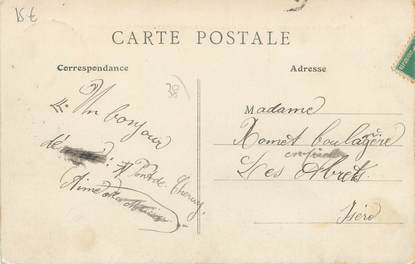 15 €
CARTE POSTALE
Correspondance
Adresse
38
Un bonjour
de
Pont de Cheruy
Aimé
Madame
Romet boulagère
Les Abrêts
Isère